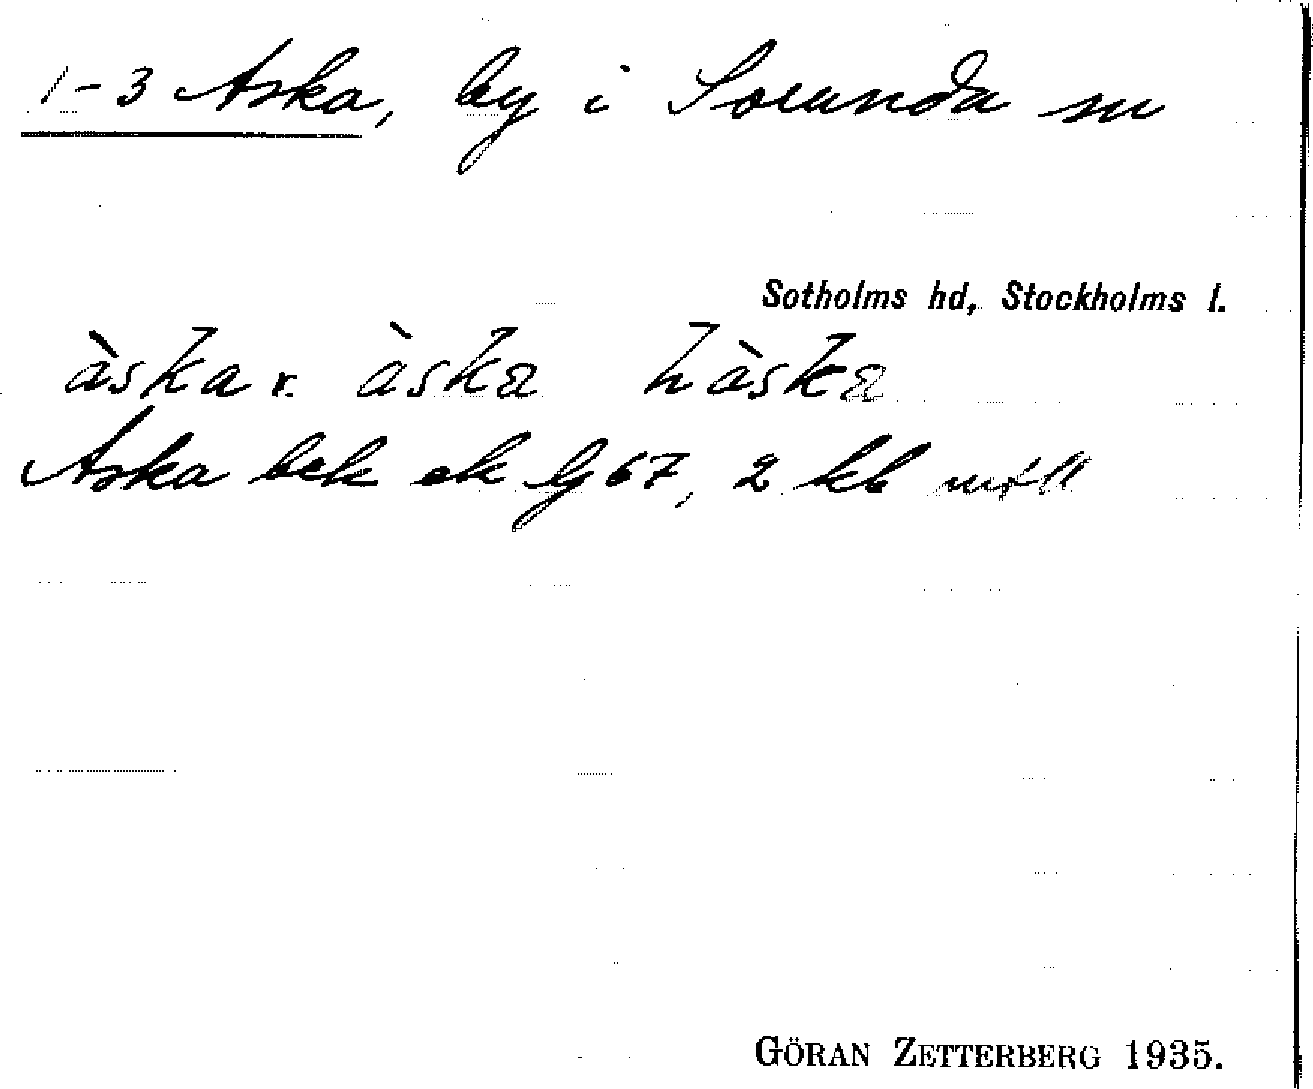 1-3 Aska, by i Sorunda sn
Sotholms hd, Stockholms l.
àska r. àska hàska
Aska bek ek bl 67, 2 kb
GÖRAN ZETTERBERG 1935.